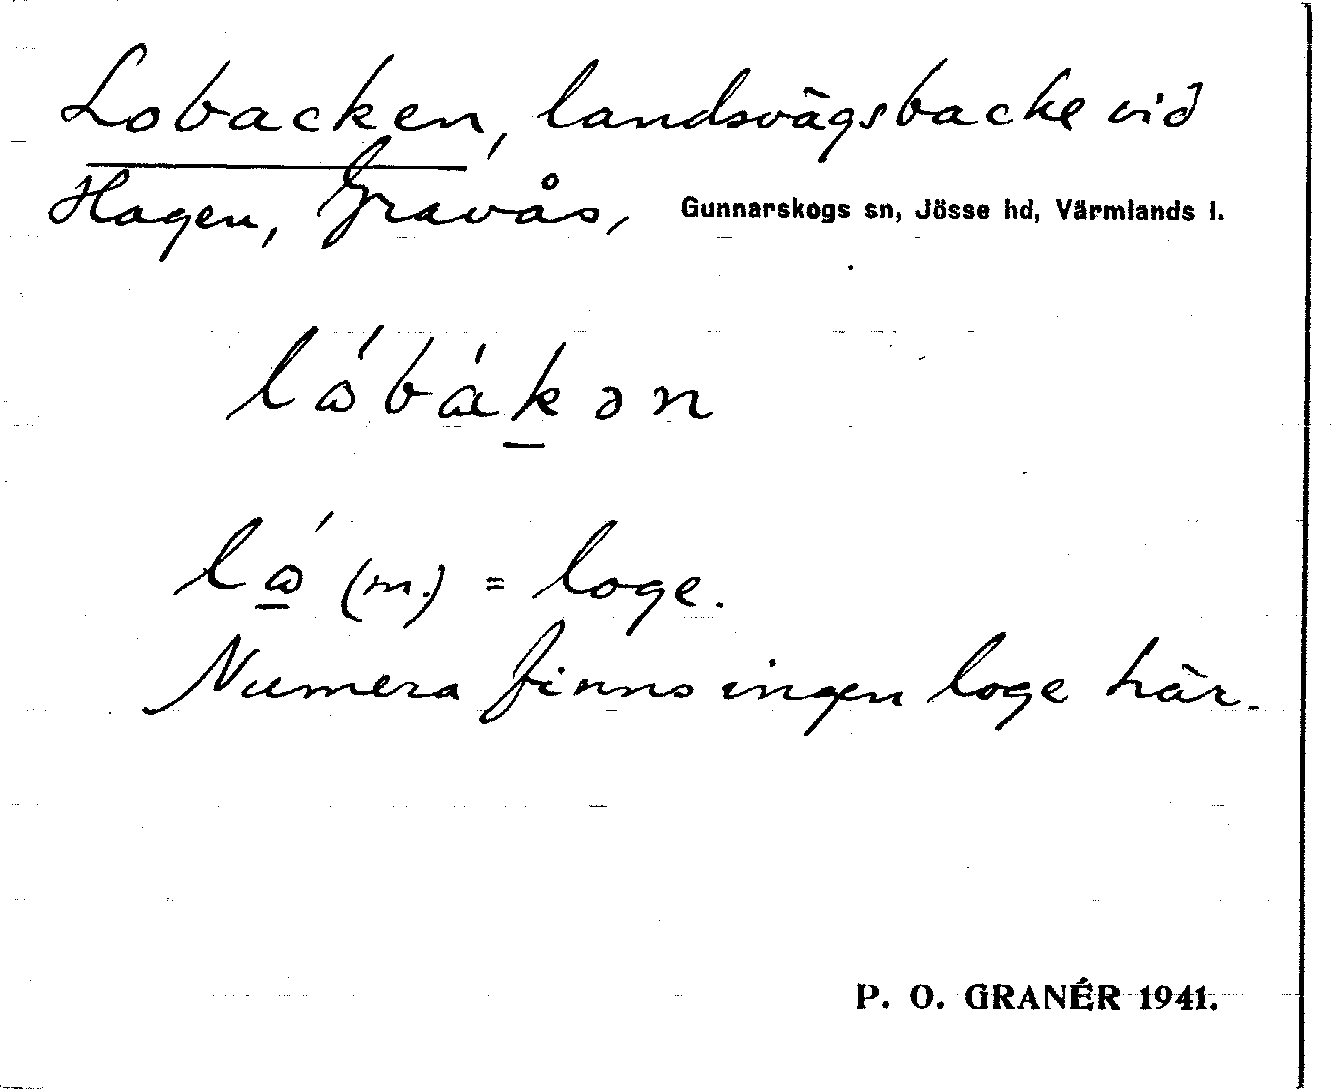 Lobacken, landsvägsbacke vid
Hagen, Gravås, Gunnarskogs sn, Jösse hd, Värmlands l.
lǻbákən
lǻ (m.) = loge.
Numera finns ingen loge här.
P. O. GRANÉR 1941.